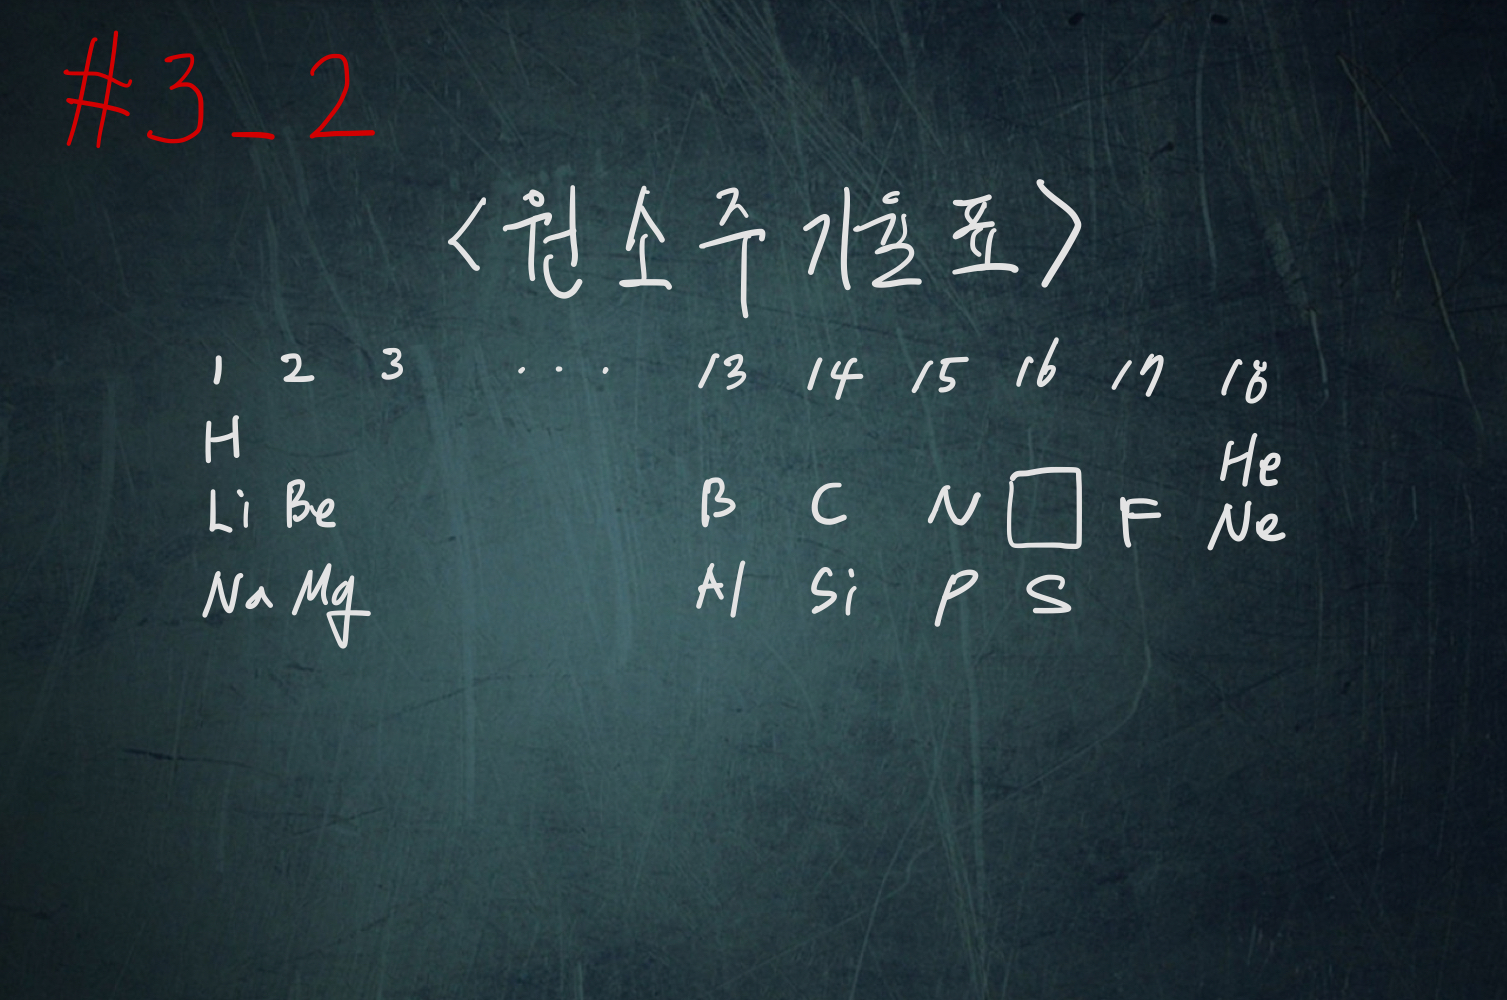 #3_2
<원소주기율표>
1 2 3 ... 13 14 15 16 17 18
H He
Li Be B C N F Ne
Na Mg Al Si P S